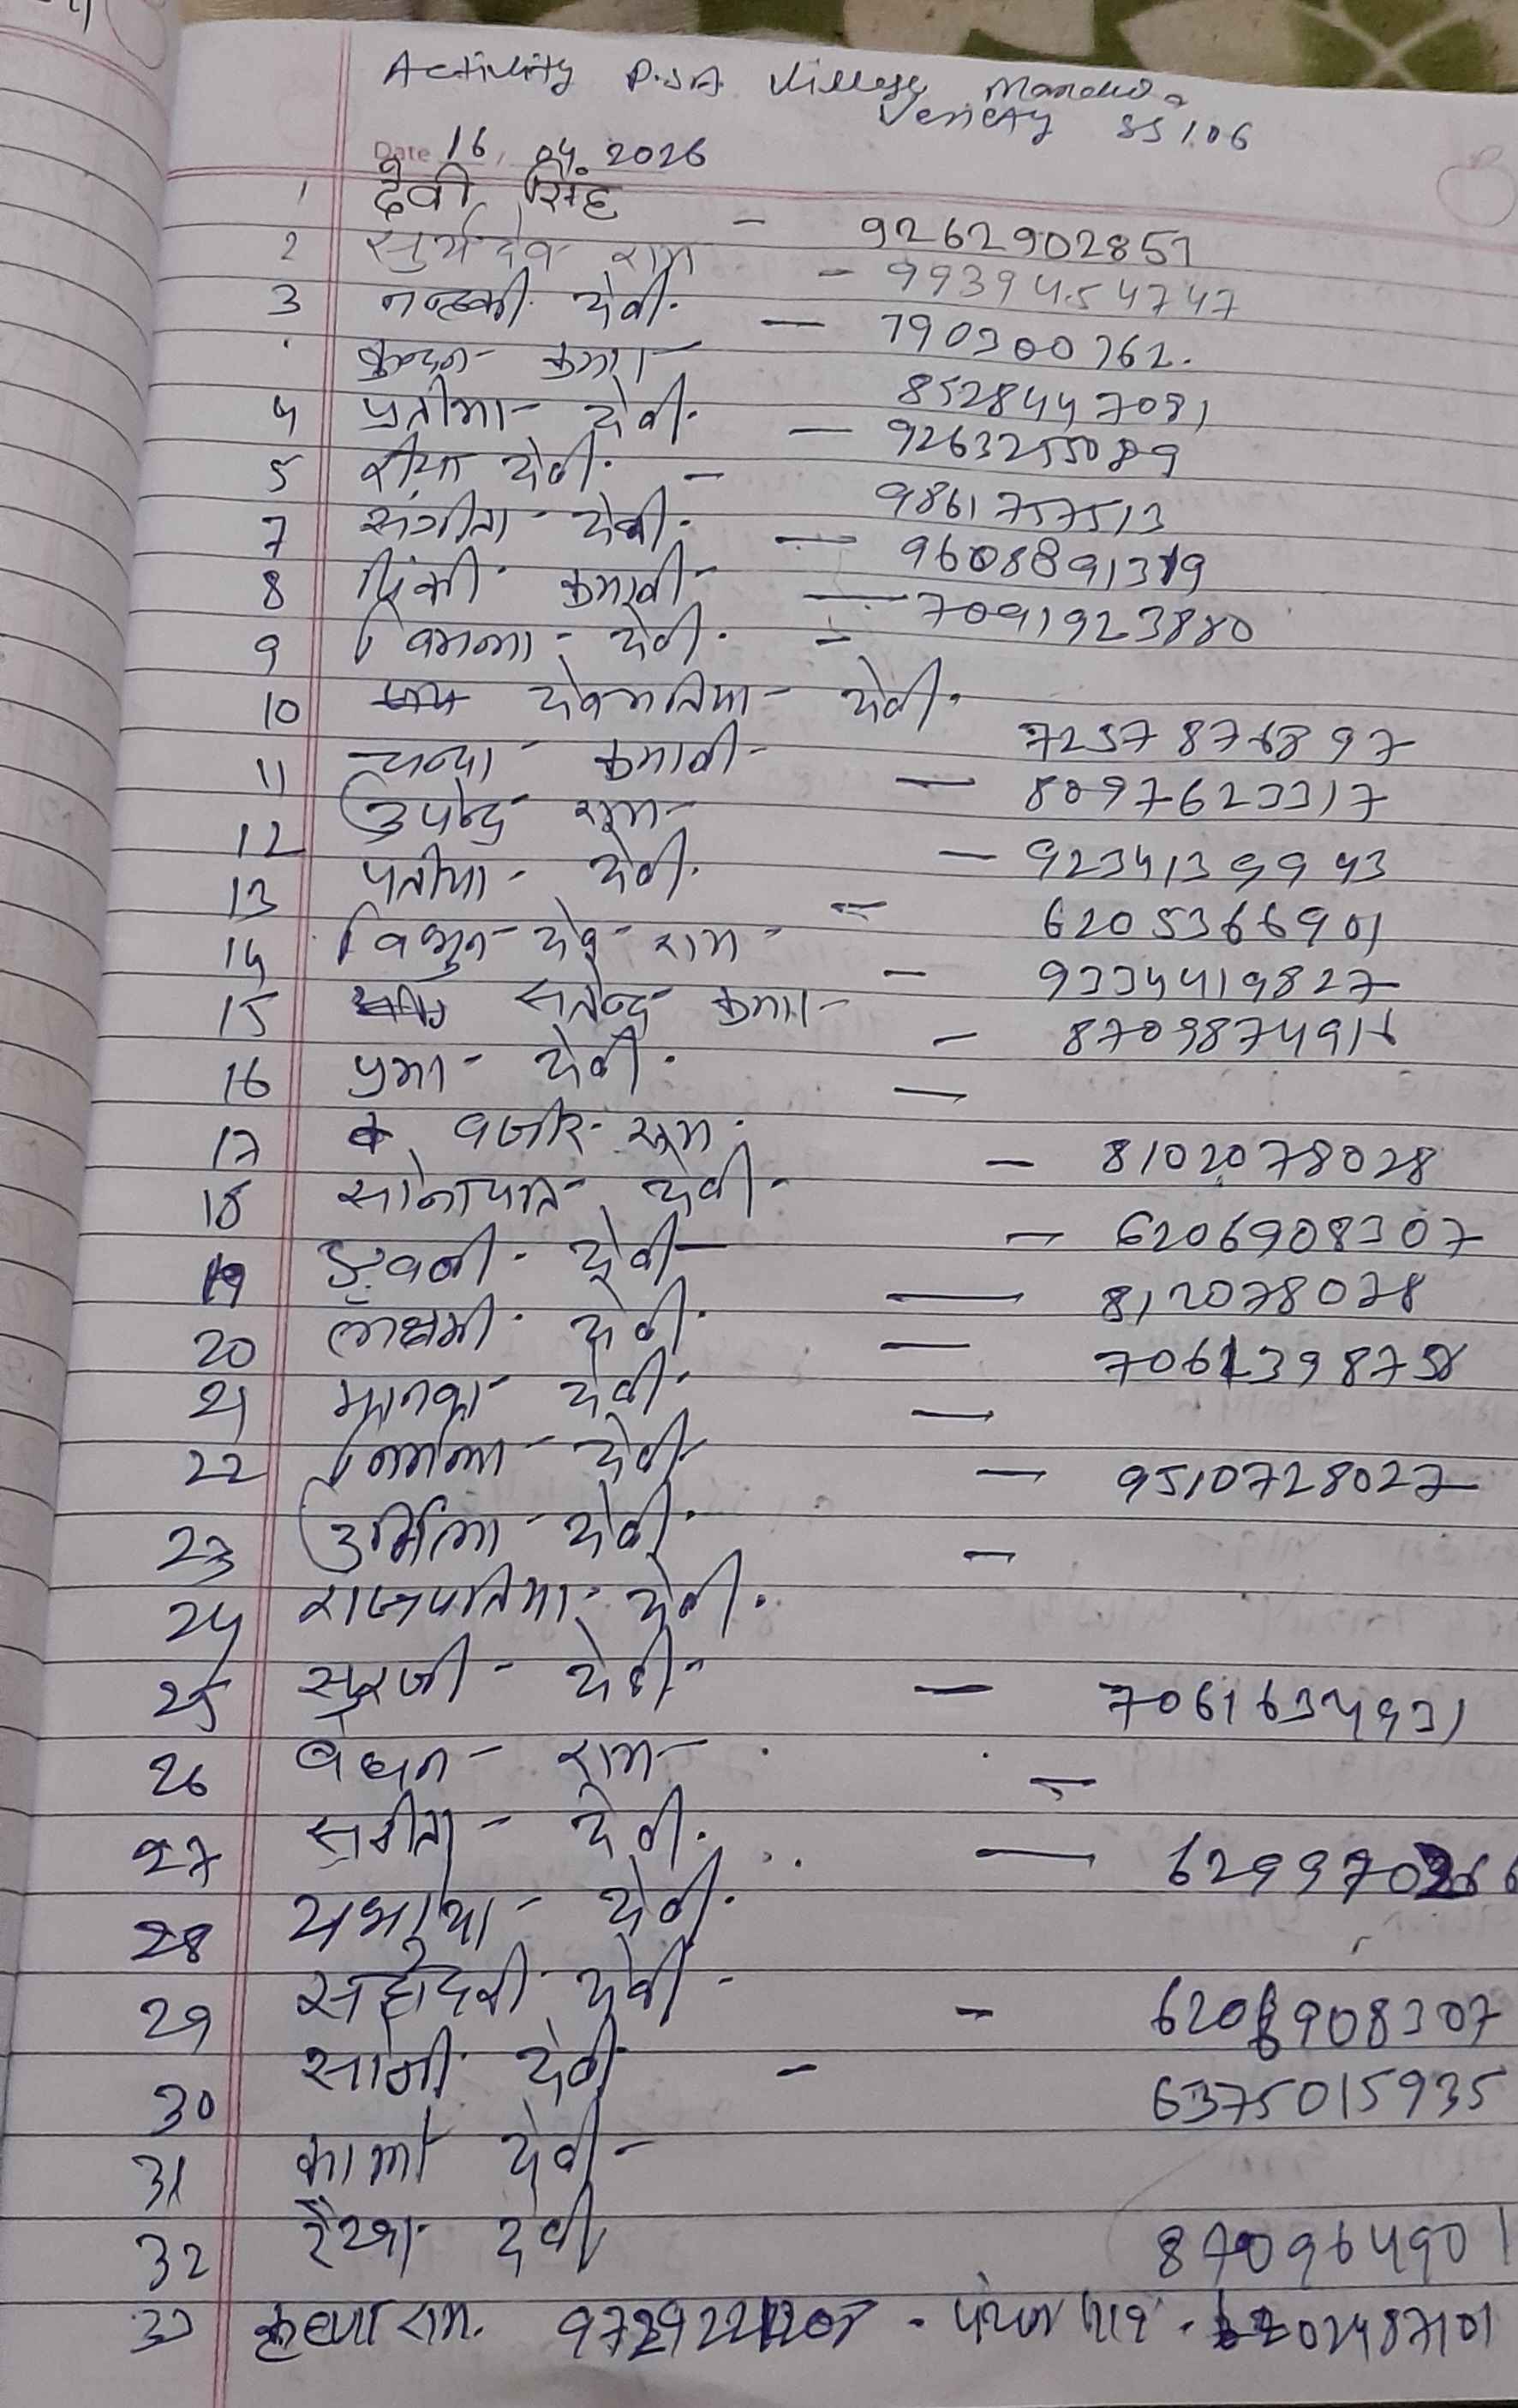 Activity P.S.A. Village
Veriety SS 106
Date 16, 04. 2026
1 देवी सिंह - 9262902851
2 सुर्यदेव राम - 9939454747
3 देवी. - 790300762.
कुन्दन कुमार 8528447081
4 प्रतीमा देवी. - 9263255089
5 रीमा देवी. - 9861757513
7 संगीता देवी. - 9608891319
8 पिंकी कुमारी - 7091923880
9 विमला देवी. -
10 देवमतिया देवी. 7257876897
11 चन्दा कुमारी - 8097623317
12 उपेन्द्र राम - 9234139943
13 देवी. - 6205366901
14 देव राम - 9334419827
15 सतेन्द्र कुमार - 8709874916
16 प्रभा देवी. -
17 वजीर राम. - 8102078028
18 सोनापति देवी - 6206908307
19 देवी - 812078028
20 लक्षमी देवी. - 7061398758
21 देवी. -
22 निर्मला देवी - 9510728027
23 उर्मिला देवी. -
24 राजपतिया देवी.
25 सुरजी देवी - 7061634931
26 राम -
27 सुनीता देवी. -
28 देवी.
29 सहोदरी देवी - 6206908307
30 सोनी देवी - 6375015935
31 देवी
32 रेखा देवी 870964901
33 राम.